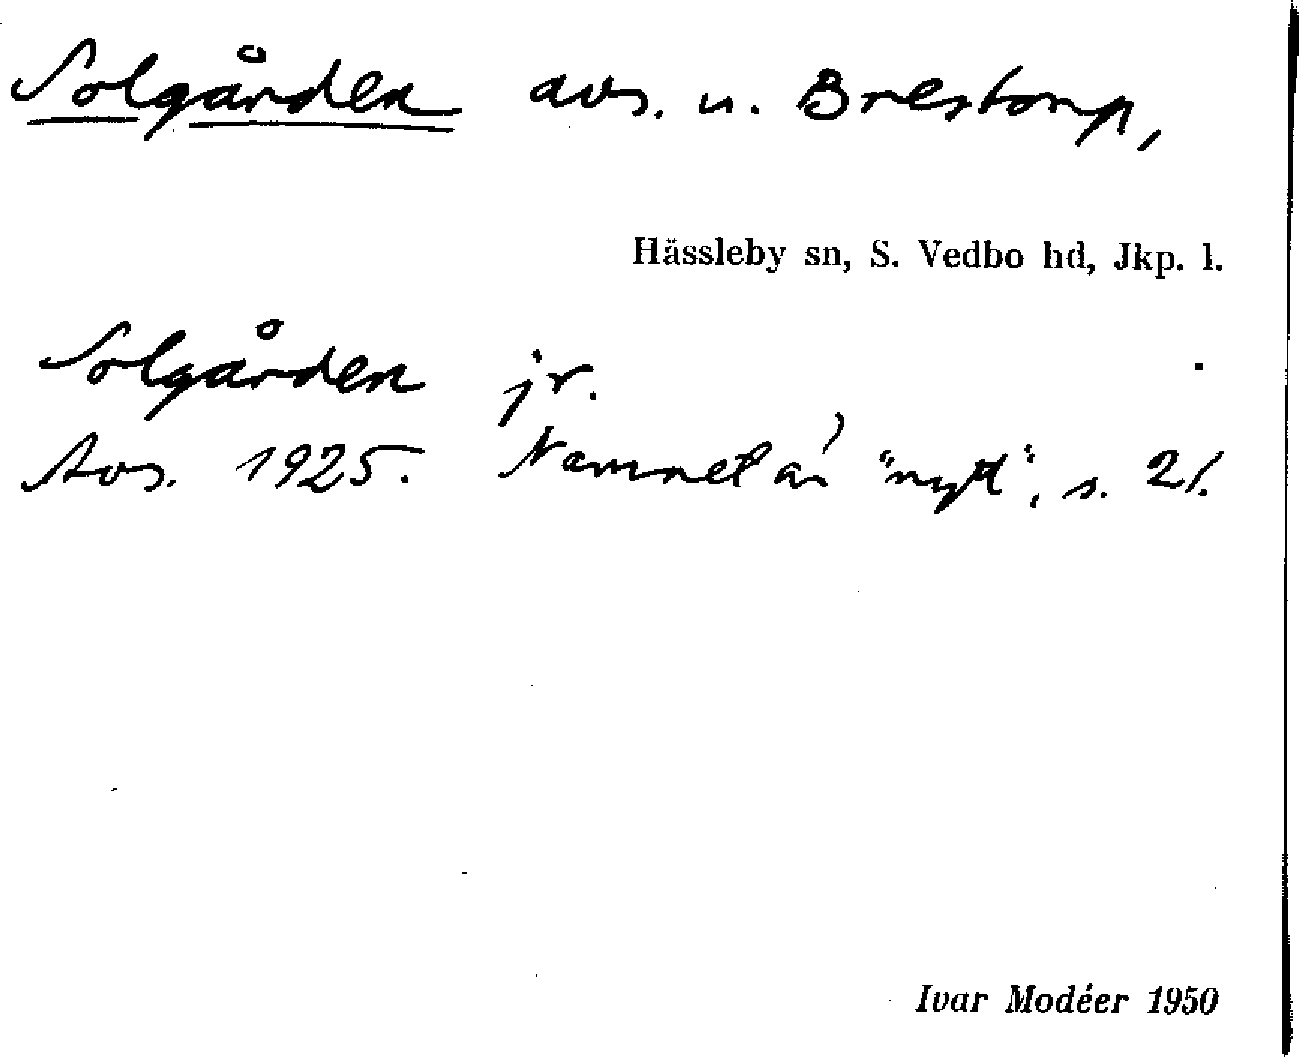 Solgården avs. u. Brestorp,
Hässleby sn, S. Vedbo hd, Jkp. l.
Solgården jr.
Avs. 1925. Namnet är "nytt", s. 21.
Ivar Modéer 1950